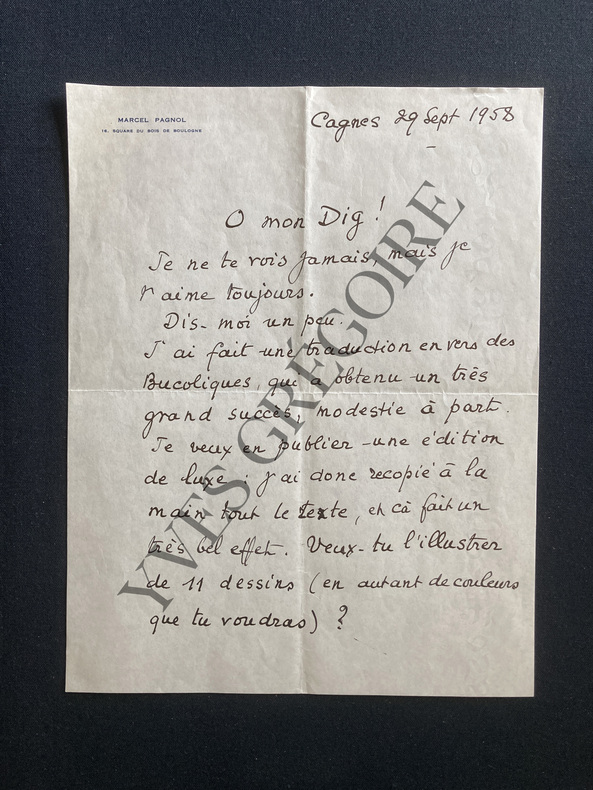 MARCEL PAGNOL
14, SQUARE DU BOIS DE BOULOGNE
Cagnes 29 Sept 1958
O mon Dig !
Je ne te vois jamais, mais je
t'aime toujours.
Dis-moi un peu.
J'ai fait une traduction en vers des
Bucoliques, qui a obtenu un très
grand succès, modestie à part.
Je veux en publier une édition
de luxe : j'ai donc recopié à la
main tout le texte, et çà fait un
très bel effet. Veux-tu l'illustrer
de 11 dessins (en autant de couleurs
que tu voudras) ?
YVES GRÉGOIRE